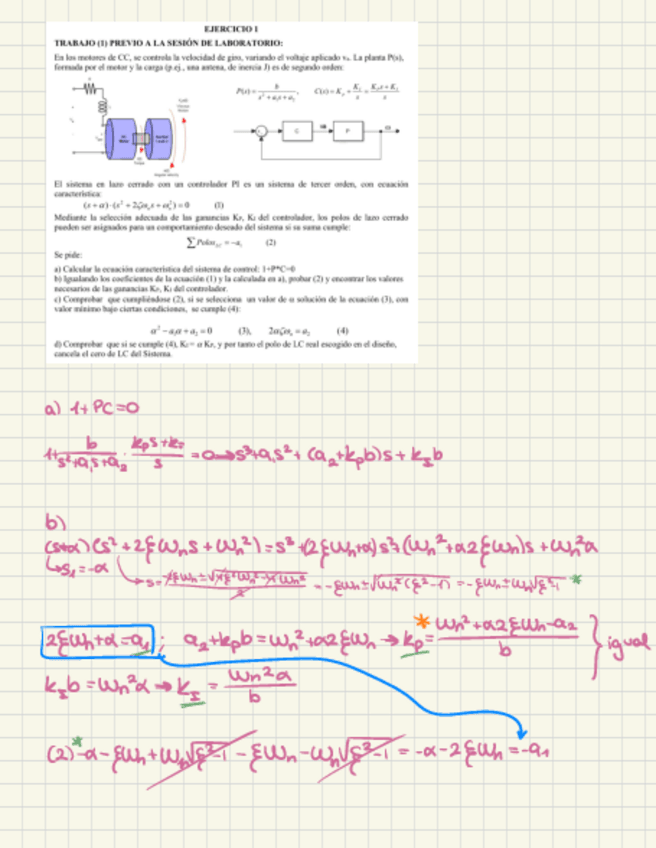 EJERCICIO 1
TRABAJO (1) PREVIO A LA SESIÓN DE LABORATORIO:
En los motores de CC, se controla la velocidad de giro, variando el voltaje aplicado vₐ. La planta P(s),
formada por el motor y la carga (p.ej., una antena, de inercia J) es de segundo orden:
P(s) = b / (s² + a₁s + a₂), C(s) = Kₚ + K_I / s = (Kₚs + K_I) / s
C
P
El sistema en lazo cerrado con un controlador PI es un sistema de tercer orden, con ecuación
característica:
(s + α)·(s² + 2ζωₙs + ωₙ²) = 0 (1)
Mediante la selección adecuada de las ganancias Kₚ, K_I del controlador, los polos de lazo cerrado
pueden ser asignados para un comportamiento deseado del sistema si su suma cumple:
∑ Polos_LC = -a₁ (2)
Se pide:
a) Calcular la ecuación característica del sistema de control: 1+P*C=0
b) Igualando los coeficientes de la ecuación (1) y la calculada en a), probar (2) y encontrar los valores
necesarios de las ganancias Kₚ, K_I del controlador.
c) Comprobar que cumpliéndose (2), si se selecciona un valor de α solución de la ecuación (3), con
valor mínimo bajo ciertas condiciones, se cumple (4):
α² - a₁α + a₂ = 0 (3), 2αζωₙ = a₂ (4)
d) Comprobar que si se cumple (4), K_I = α Kₚ, y por tanto el polo de LC real escogido en el diseño,
cancela el cero de LC del Sistema.
a) 1+ PC=0
1+ b / (s²+a₁s+a₂) · (kₚs+k_I) / s = 0 → s³+a₁s²+ (a₂+kₚb)s + k_I b
b)
(s+α)(s² + 2ξωₙs + ωₙ²) = s³ + (2ξωₙ+α)s² + (ωₙ²+α2ξωₙ)s + ωₙ²α
↳s₁=-α ↳ s = (-2ξωₙ ± √(4ξ²ωₙ² - 4ωₙ²)) / 2 = -ξωₙ ± √(ωₙ²(ξ²-1)) = -ξωₙ ± ωₙ√(ξ²-1) *
2ξωₙ+α=a₁ ; a₂+kₚb=ωₙ²+α2ξωₙ → kₚ = * (ωₙ²+α2ξωₙ-a₂) / b } igual
k_I b = ωₙ²α → k_I = ωₙ²α / b
(2)* -α-ξωₙ+ωₙ√(ξ²-1) - ξωₙ-ωₙ√(ξ²-1) = -α-2ξωₙ = -a₁